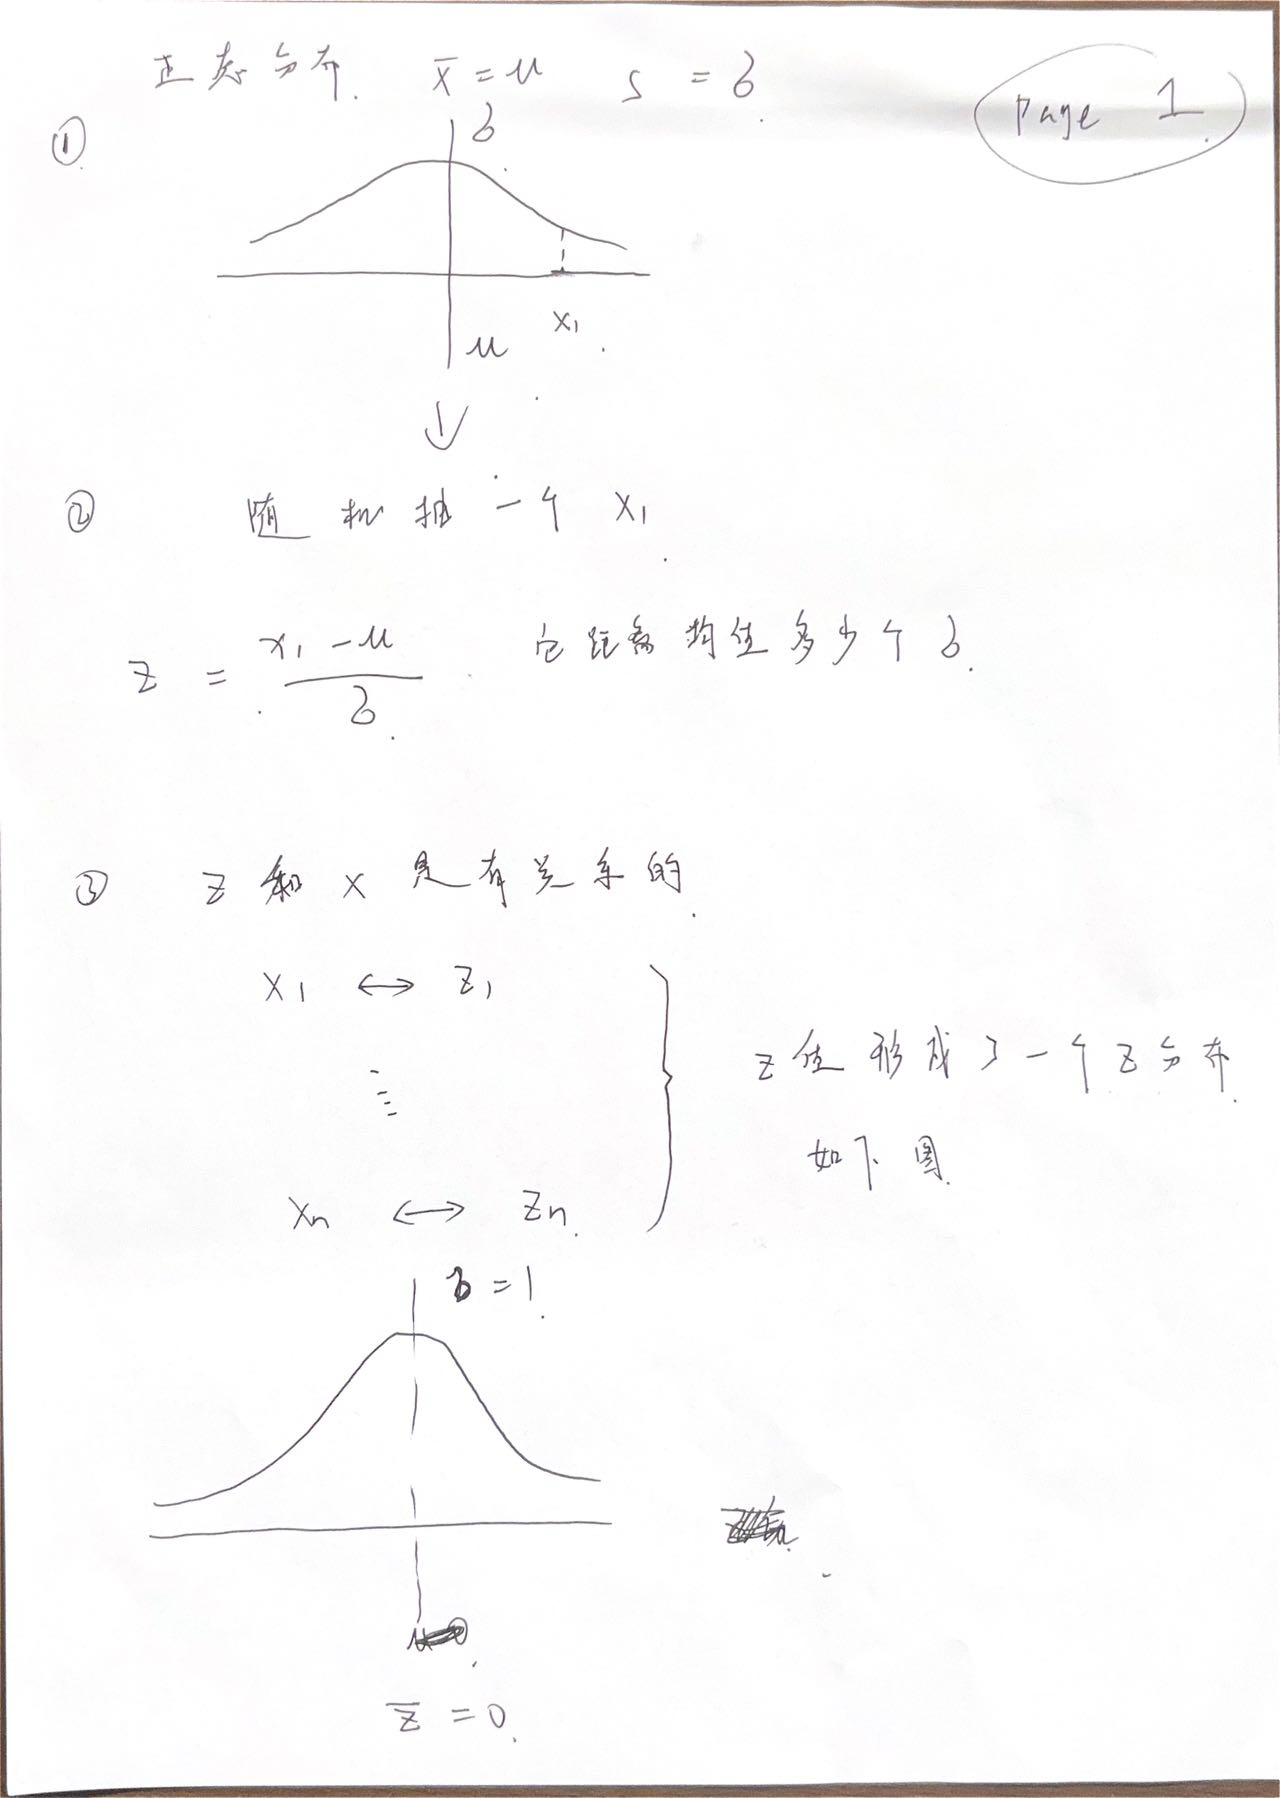 正态分布. x̄ = μ s = σ
page 1
①
σ
x₁
μ
② 随机抽一个 x₁
z = (x₁ - μ) / σ 它距离均值多少个 σ
③ z 和 x 是有关系的
x₁ ↔ z₁
⋮
xₙ ↔ zₙ
z值形成了一个z分布
如下图
σ = 1
z̄ = 0